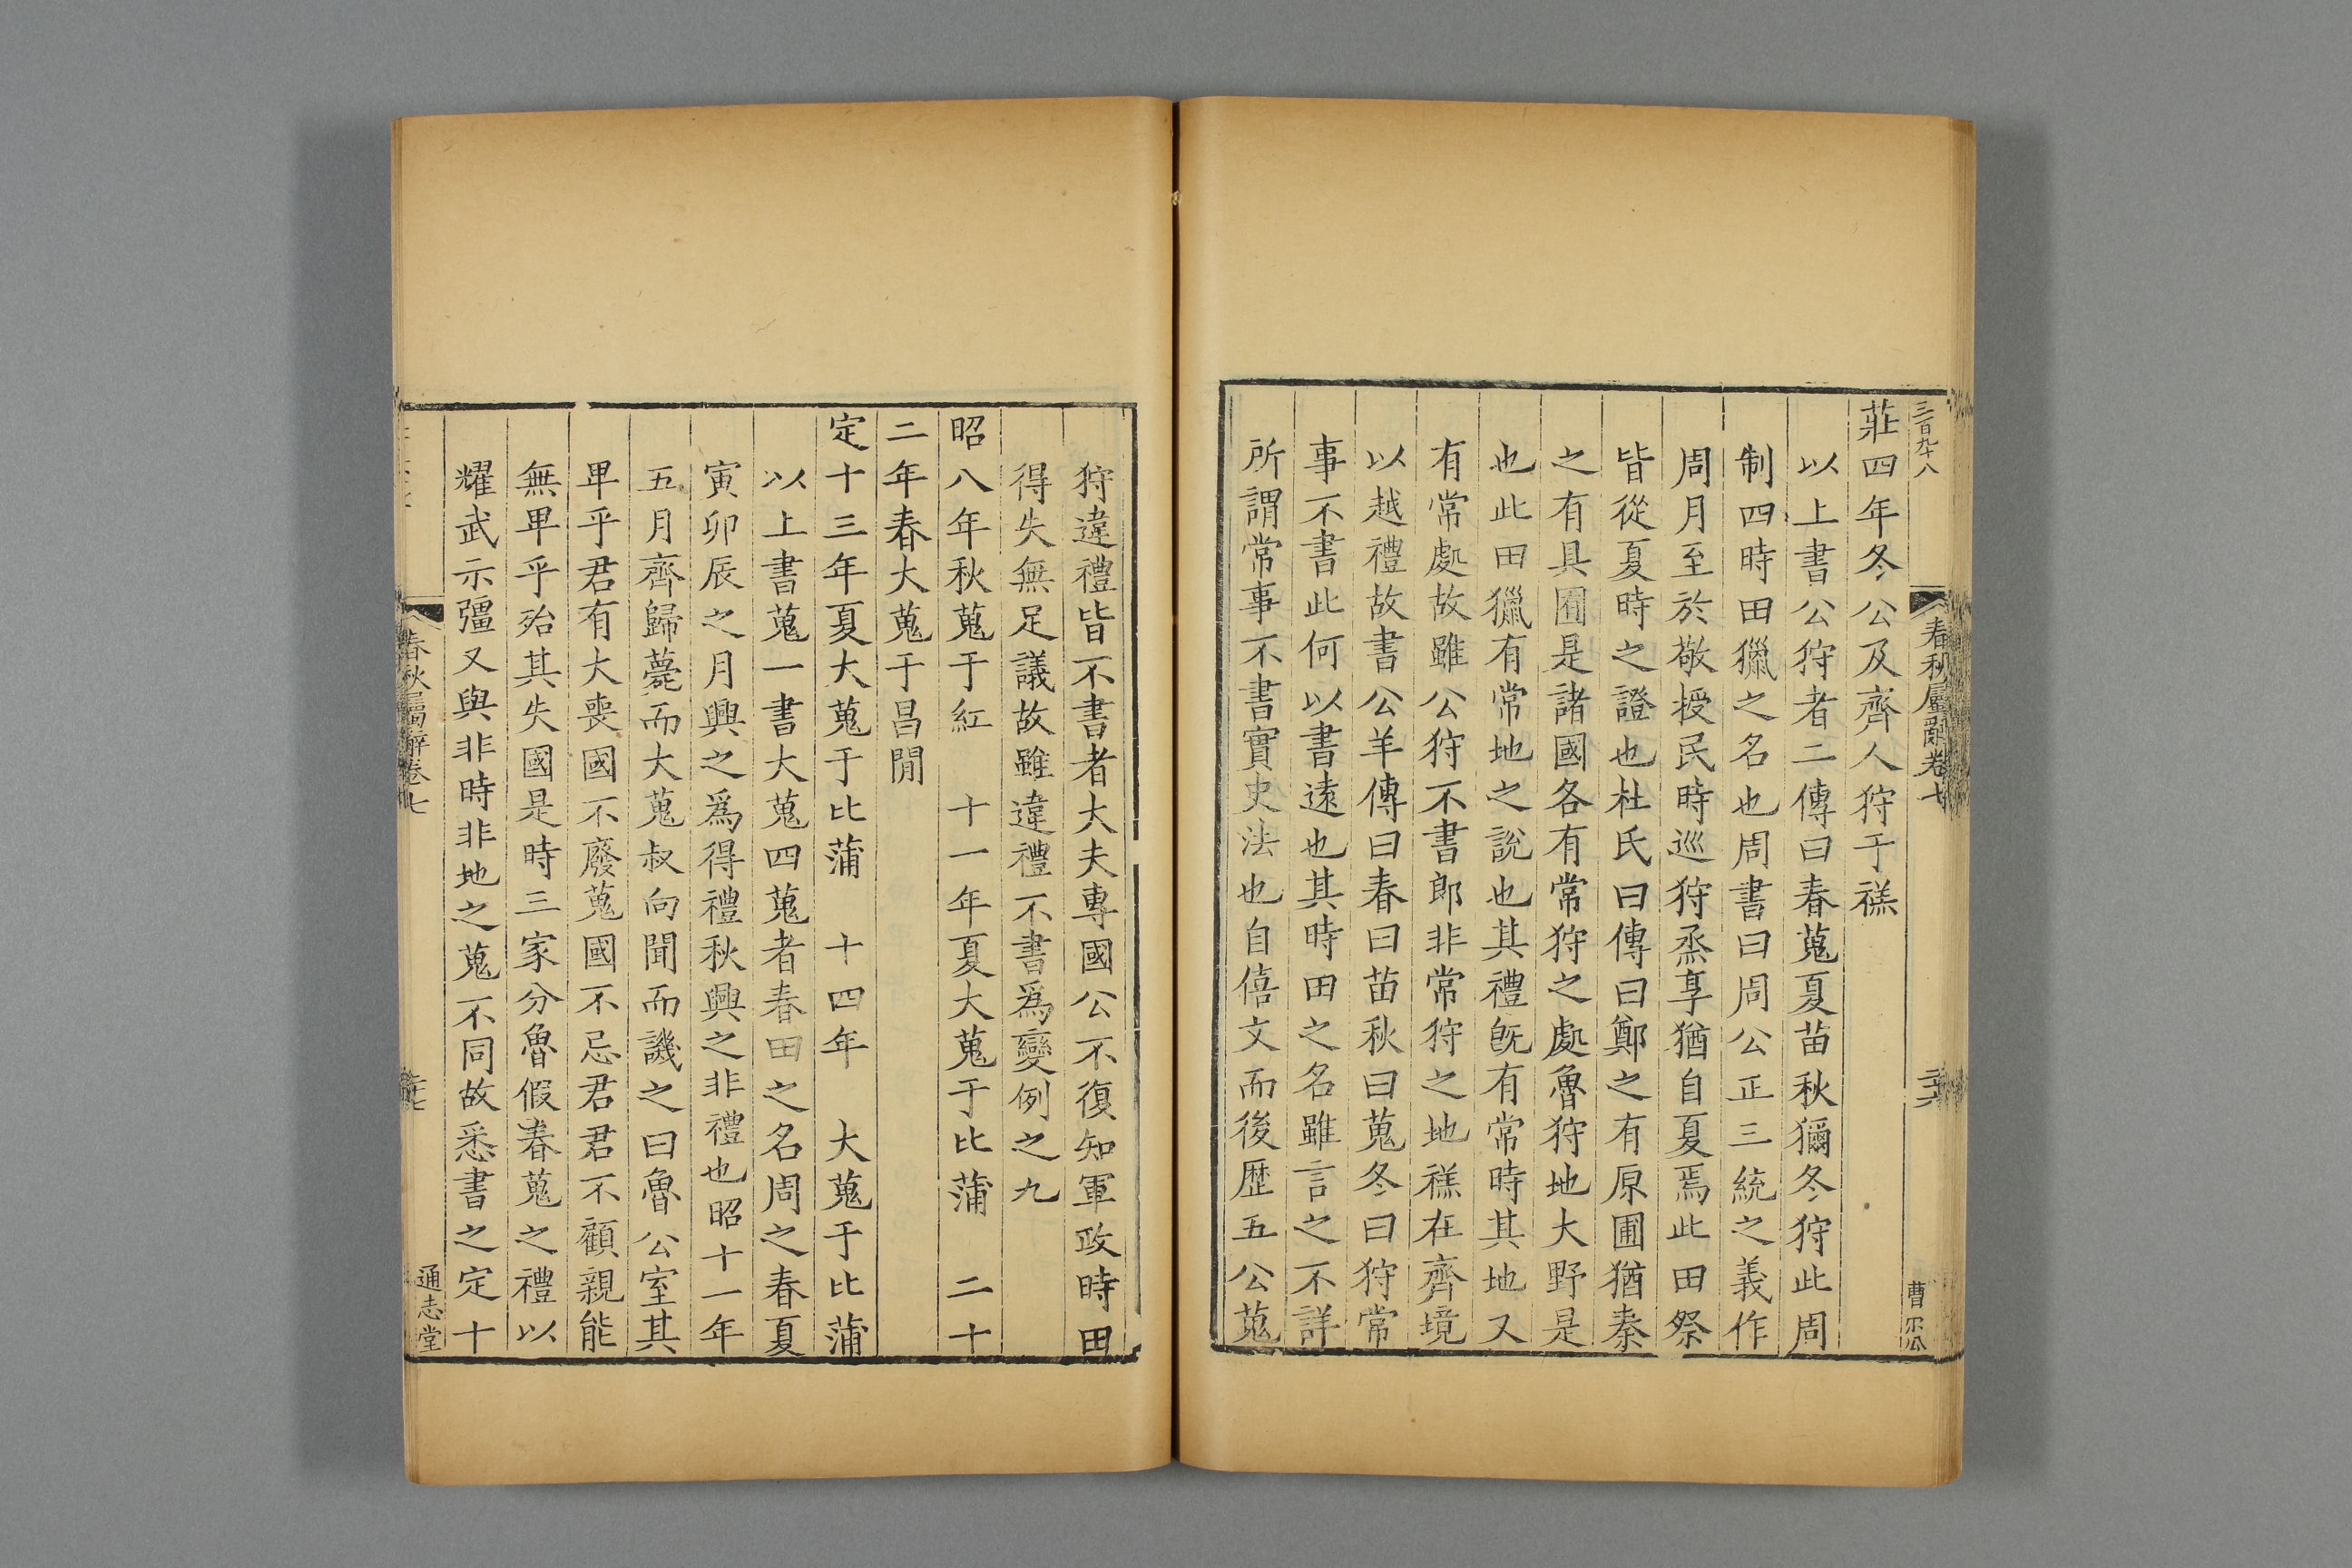 三百九十八
春秋屬辭卷七
二十六
曹尔公
莊四年冬公及齊人狩于禚
以上書公狩者二傳曰春蒐夏苗秋獮冬狩此周
制四時田獵之名也周書曰周公正三統之義作
周月至於敬授民時巡狩烝享猶自夏焉此田祭
皆從夏時之證也杜氏曰傳曰鄭之有原圃猶秦
之有具囿是諸國各有常狩之處魯狩地大野是
也此田獵有常地之說也其禮旣有常時其地又
有常處故雖公狩不書郎非常狩之地禚在齊境
以越禮故書公羊傳曰春曰苗秋曰蒐冬曰狩常
事不書此何以書遠也其時田之名雖言之不詳
所謂常事不書實史法也自僖文而後歴五公蒐
狩違禮皆不書者大夫專國公不復知軍政時田
得失無足議故雖違禮不書爲變例之九
昭八年秋蒐于紅 十一年夏大蒐于比蒲 二十
二年春大蒐于昌閒
定十三年夏大蒐于比蒲 十四年 大蒐于比蒲
以上書蒐一書大蒐四蒐者春田之名周之春夏
寅卯辰之月興之爲得禮秋興之非禮也昭十一年
五月齊歸薨而大蒐叔向聞而譏之曰魯公室其
卑乎君有大喪國不廢蒐國不忌君君不顧親能
無卑乎殆其失國是時三家分魯假春蒐之禮以
耀武示彊又與非時非地之蒐不同故悉書之定十
春秋屬辭卷七
二十七
通志堂